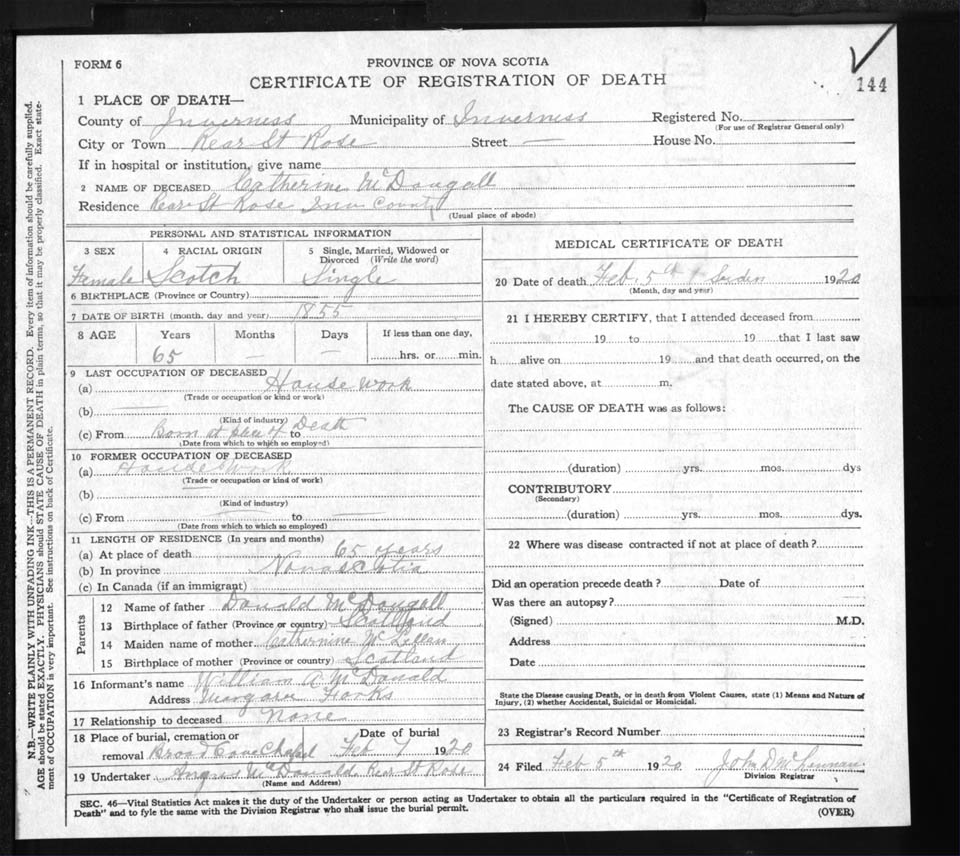 FORM 6
PROVINCE OF NOVA SCOTIA
CERTIFICATE OF REGISTRATION OF DEATH
144
1 PLACE OF DEATH—
County of Inverness Municipality of Inverness Registered No.
(For use of Registrar General only)
City or Town Rear St Rose Street — House No.
If in hospital or institution, give name
2 NAME OF DECEASED Catherine McDougall
Residence Rear St Rose Inv County
(Usual place of abode)
PERSONAL AND STATISTICAL INFORMATION
3 SEX 4 RACIAL ORIGIN 5 Single, Married, Widowed or Divorced (Write the word)
Female Scotch Single
6 BIRTHPLACE (Province or Country)
7 DATE OF BIRTH (month, day and year) 1855
8 AGE Years Months Days If less than one day,
65 — — hrs. or min.
9 LAST OCCUPATION OF DECEASED
(a) House Work
(Trade or occupation or kind or work)
(b) —
(Kind of industry)
(c) From Born at place of to Death
(Date from which to which so employed)
10 FORMER OCCUPATION OF DECEASED
(a) House Work
(Trade or occupation or kind of work)
(b)
(Kind of industry)
(c) From — to —
(Date from which to which so employed)
11 LENGTH OF RESIDENCE (In years and months)
(a) At place of death 65 years
(b) In province Nova Scotia
(c) In Canada (if an immigrant)
Parents
12 Name of father Donald McDougall
13 Birthplace of father (Province or country) Scotland
14 Maiden name of mother Catherine McLellan
15 Birthplace of mother (Province or country) Scotland
16 Informant's name William A McDonald
Address Margaree Forks
17 Relationship to deceased None
18 Place of burial, cremation or Date of burial
removal Broad Cove Chapel Feb 7 1920
19 Undertaker Angus McDonald Rear St Rose
(Name and Address)
MEDICAL CERTIFICATE OF DEATH
20 Date of death Feb 5th 1920
(Month, day and year)
21 I HEREBY CERTIFY, that I attended deceased from
19 to 19 that I last saw
h alive on 19 and that death occurred, on the
date stated above, at m.
The CAUSE OF DEATH was as follows:
(duration) yrs. mos. dys
CONTRIBUTORY
(Secondary)
(duration) yrs. mos. dys.
22 Where was disease contracted if not at place of death?
Did an operation precede death? Date of
Was there an autopsy?
(Signed) M.D.
Address
Date
State the Disease causing Death, or in death from Violent Causes, state (1) Means and Nature of
Injury, (2) whether Accidental, Suicidal or Homicidal.
23 Registrar's Record Number
24 Filed Feb 5th 1920 John D McLennan
Division Registrar
SEC. 46—Vital Statistics Act makes it the duty of the Undertaker or person acting as Undertaker to obtain all the particulars required in the "Certificate of Registration of
Death" and to fyle the same with the Division Registrar who shall issue the burial permit.
(OVER)
N.B.—WRITE PLAINLY WITH UNFADING INK—THIS IS A PERMANENT RECORD. Every item of information should be carefully supplied.
AGE should be stated EXACTLY. PHYSICIANS should STATE CAUSE OF DEATH in plain terms, so that it may be properly classified. Exact state-
ment of OCCUPATION is very important. See instructions on back of Certificate.